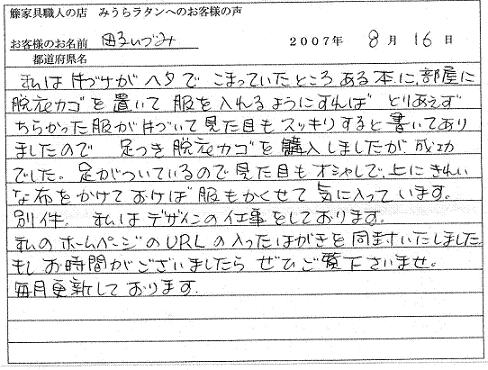 籐家具職人の店 みうらラタンへのお客様の声
お客様のお名前 2007年 8月 16日
都道府県名
私は片づけがヘタで こまっていたところ ある本に、部屋に
脱衣カゴを置いて 服を入れるようにすれば とりあえず
ちらかった服が片づいて見た目もスッキリすると書いてあり
ましたので 足つき脱衣カゴを購入しましたが成功
でした。足がついているので見た目もオシャレで、上にきれい
な布をかけておけば服もかくせて気に入っています。
別件。私はデザインの仕事をしております。
私のホームページのURLの入ったはがきを同封いたしました
もしお時間がございましたら ぜひご覧下さいませ。
毎月更新しております。